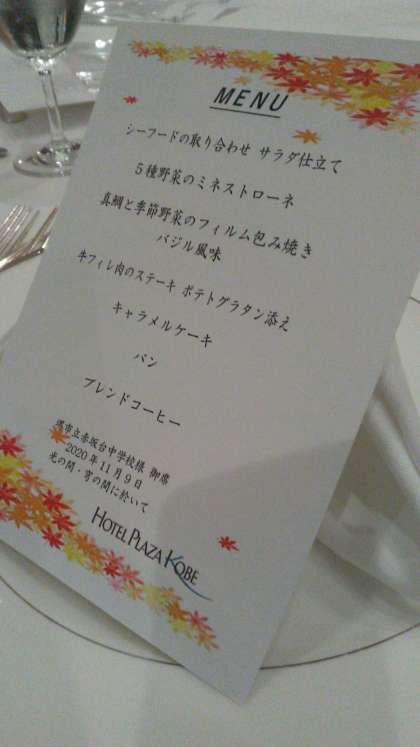 MENU
シーフードの取り合わせ サラダ仕立て
5種野菜のミネストローネ
真鯛と季節野菜のフィルム包み焼き
バジル風味
牛フィレ肉のステーキ ポテトグラタン添え
キャラメルケーキ
パン
ブレンドコーヒー
堺市立赤坂台中学校様 御席
2020年11月9日
光の間・宮の間に於いて
HOTEL PLAZA KOBE